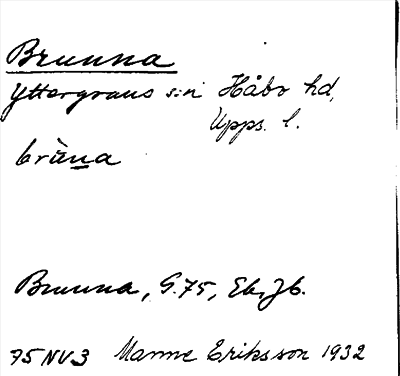 Brunna
Yttergrans s:n Håbo hd,
Upps. l.
brùna
Brunna, G.75, Eb, Jb.
75NV3 Manne Eriksson 1932